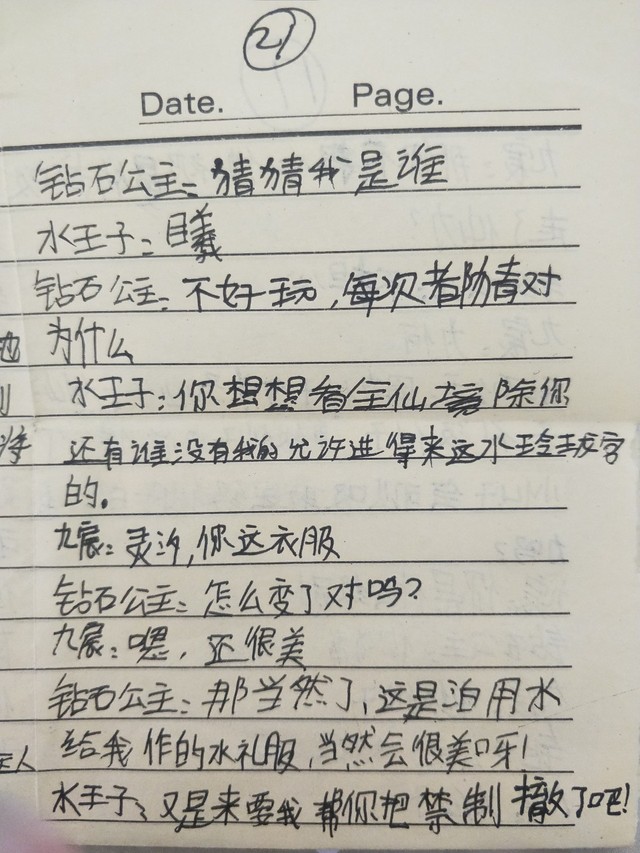 21
Date. Page.
钻石公主：猜猜我是谁
水王子：曦
钻石公主：不好玩，每次都猜对
为什么
水王子：你想想看全仙境除你
还有谁没有我的允许进得来这水玲珑字
的。
九宸：灵汐，你这衣服
钻石公主：怎么变了对吗？
九宸：嗯，还很美
钻石公主：那当然了，这是泊用水
给我作的水礼服，当然会很美呀！
水王子：又是来要我帮你把禁制撤了吧！